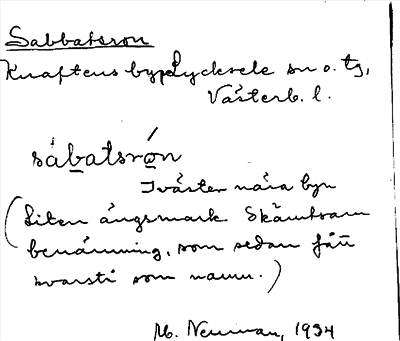 Sabbatsron
Knaftens byp Lycksele sn o. tg,
Västerb. l.
sábatsrón
I väster nära byn
(Liten ängsmark. Skämtsam
benämning, som sedan fått
kvarstå som namn.)
M. Neuman, 1934